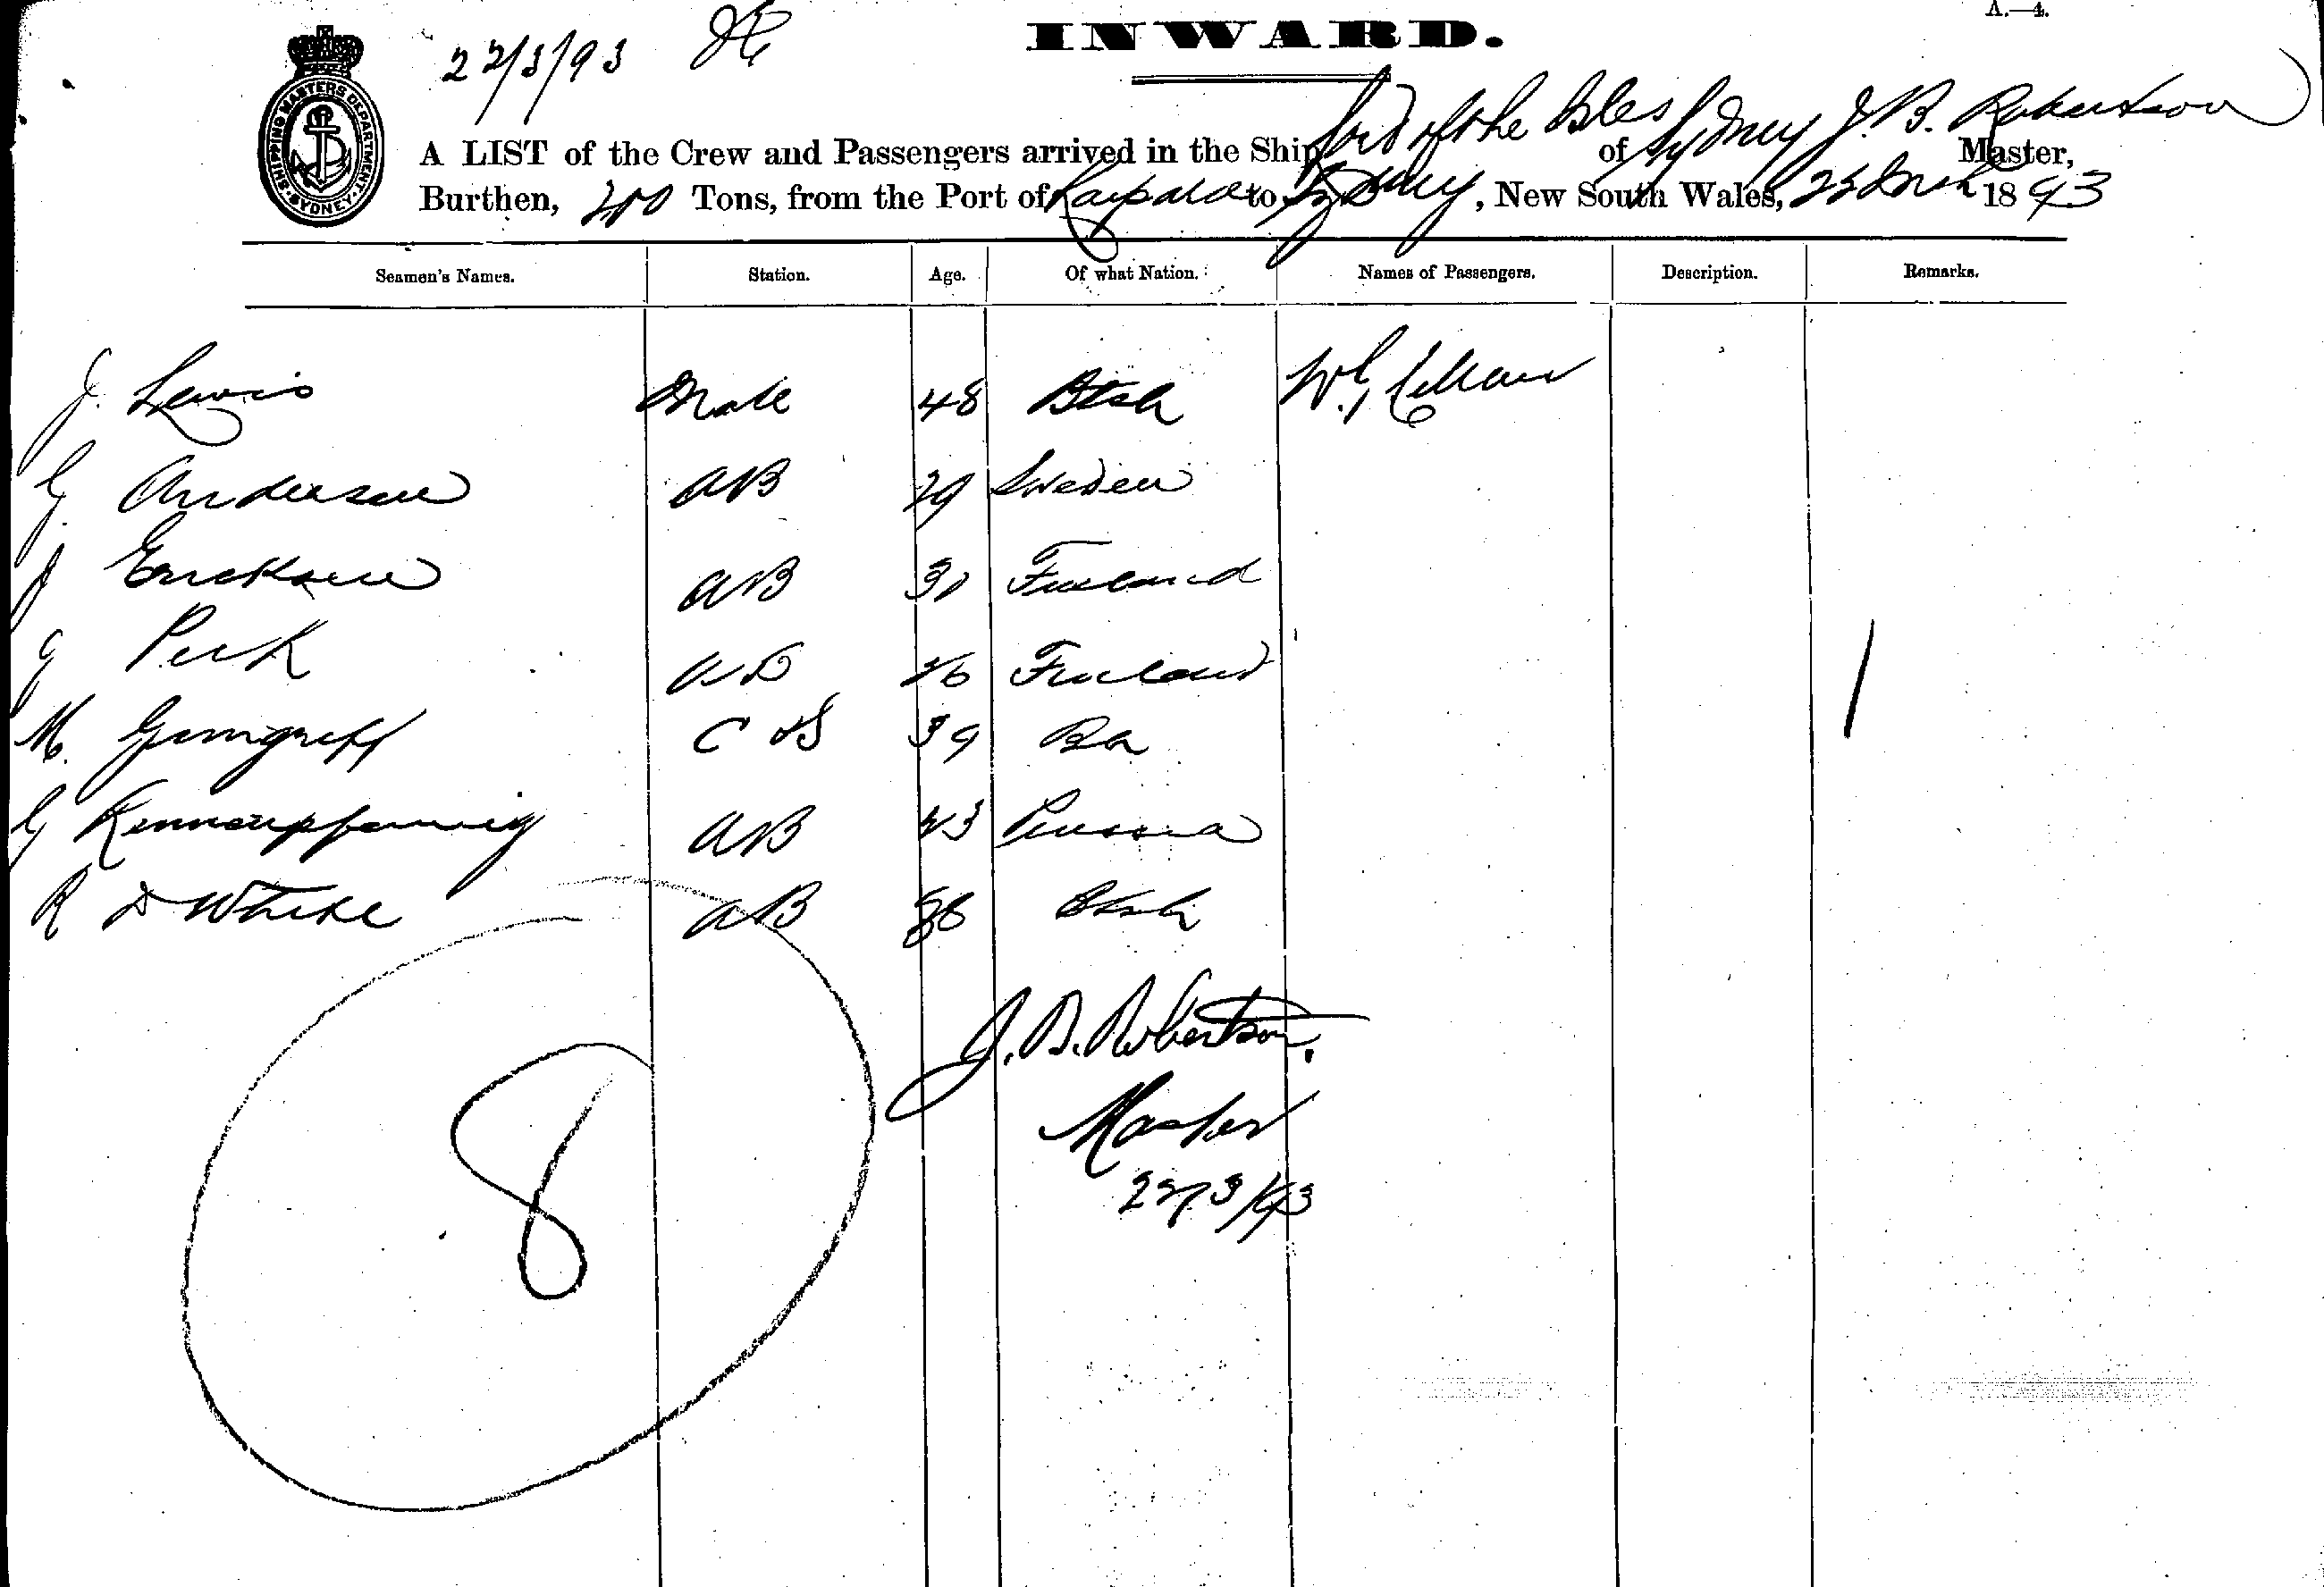 A.—4.
INWARD.
22/3/93
SHIPPING MASTERS DEPARTMENT SYDNEY
A LIST of the Crew and Passengers arrived in the Ship Lord of the Isles of Sydney J. B. Robertson Master,
Burthen, 200 Tons, from the Port of Kaipara to Sydney, New South Wales, 22 Mch 1893
Seamen's Names. Station. Age. Of what Nation. Names of Passengers. Description. Remarks.
J. Lewis Mate 48 Btsh
G. Anderson AB 29 Sweden
J Erickson AB 30 Finland
G Perk AB 26 Finland
M. C & S 39
G AB 43 Prussia
R D White AB 38 Btsh
J. B. Robertson.
Master
22/3/93
8